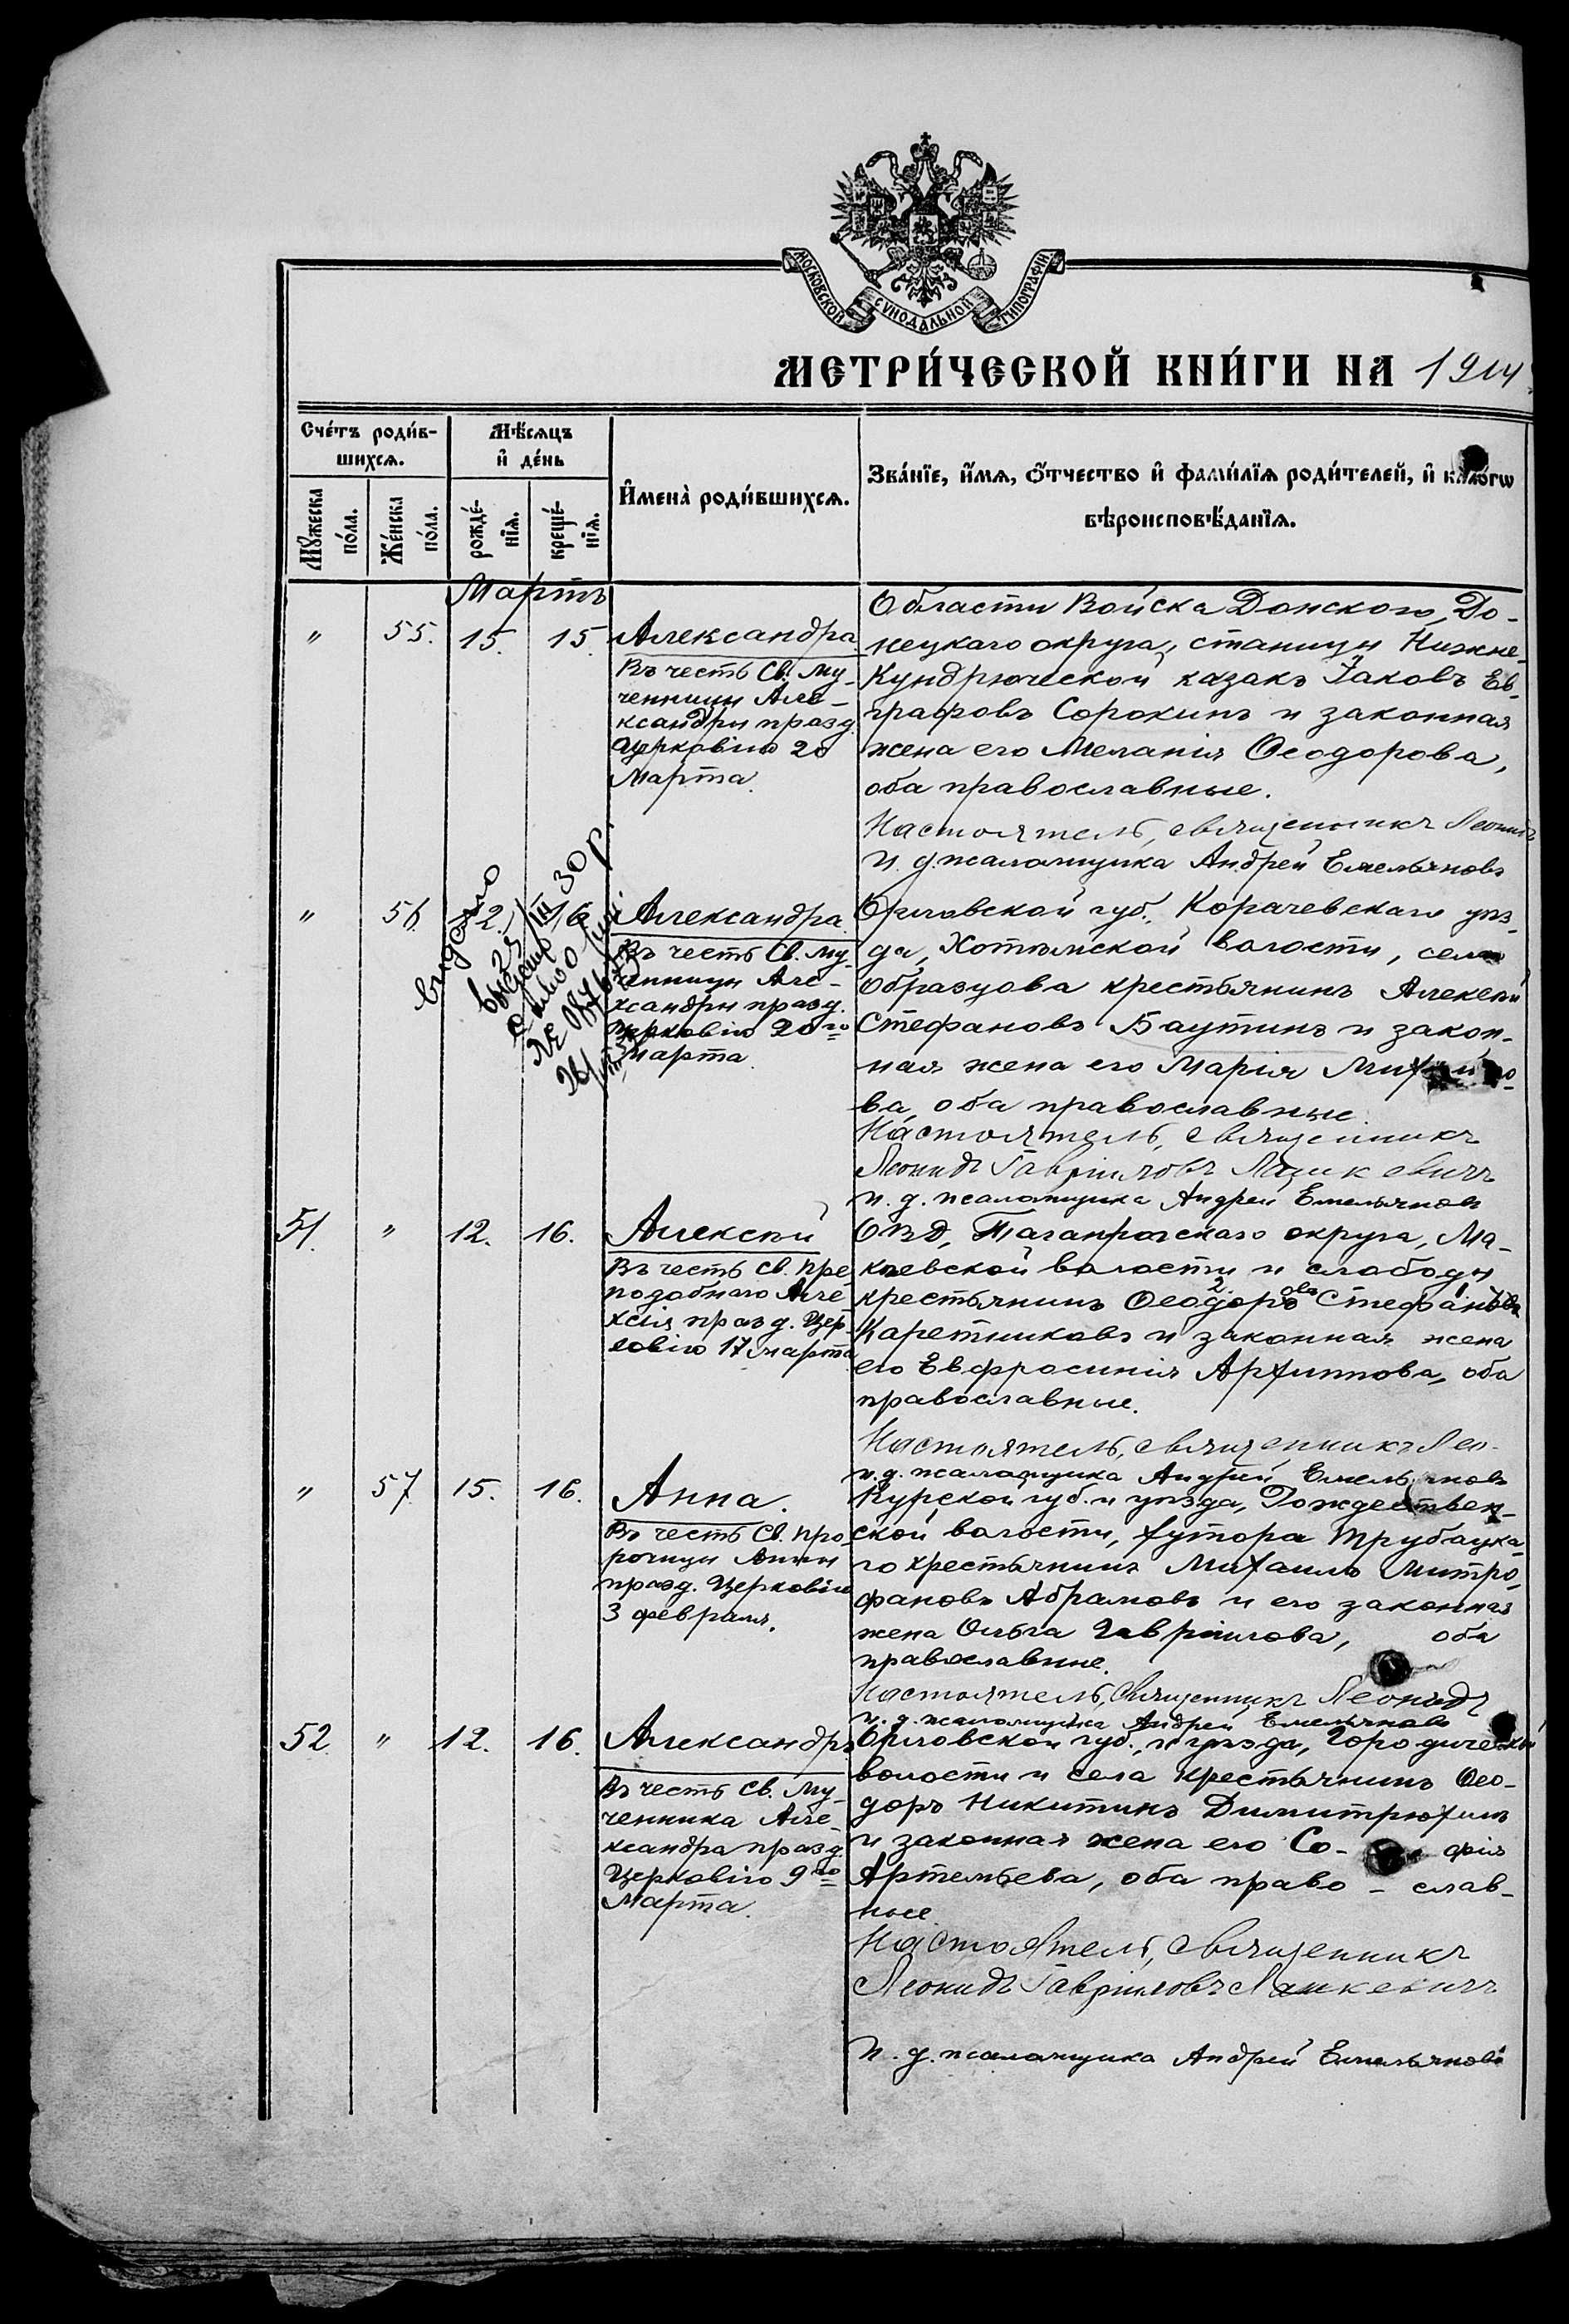 МОСКОВСКОЙ СѴНОДАЛЬНОЙ ТИПОГРАФІИ
МЕТРИ́ЧЕСКОЙ КНИ́ГИ НА 1914
Сче́тъ роди́в-
шихсѧ.
Мѣ́сѧцъ
и҆ де́нь
И҆мена̀ роди́вшихсѧ.
Зва́нїе, и҆́мѧ, ѻ҆́тчество и҆ фами́лїѧ роди́телей, и҆ како́гѡ
вѣроисповѣ́данїѧ.
Мꙋ́жеска
по́ла.
Же́нска
по́ла.
рожде́-
нїѧ.
креще́-
нїѧ.
Мартъ
" 55. 15. 15. Александра
Въ честь Св. му-
ченицы Але-
ксандры празд.
Церковію 20
Марта.
Области Войска Донского, До-
нецкаго округа, станицы Нижне-
Кундрюческой казакъ Іаковъ Ев-
графовъ Сорокинъ и законная
жена его Меланія Ѳеодорова,
оба православные.
Настоятель, священникъ Леонидъ
И. д. псаломщика Андрей Емельяновъ
выдано
" 56. 2. 16. Александра.
Въ честь Св. му-
ченицы Але-
ксандры празд.
Церковію 20го
Марта.
Орловской губ., Корачевскаго уѣз-
да, Хотимской волости, села
Образцова крестьянинъ Алексѣй
Стефановъ Баутинъ и закон-
ная жена его Марія
ва, оба православные.
Настоятель, священникъ
Леонидъ Гавріиловъ Лашкевичъ
И. д. псаломщика Андрей Емельяновъ
51. " 12. 16. Алексѣй
Въ честь Св. пре
подобнаго Але-
ксія празд. Цер-
ковію 17 марта
ОВД, Таганрогскаго округа, Ма-
кѣевской волости и слободы
крестьянинъ Ѳеодоръ Стефановъ
Каретниковъ и законная жена
его Евфросинія Архиппова, оба
православные.
Настоятель, священникъ Лео-
И. д. псаломщика Андрей Емельяновъ
" 57 15. 16. Анна.
Въ честь Св. про-
рочицы Анны
празд. Церковію
3 февраля.
Курской губ. и уѣзда, Рождествен-
ской волости, хутора Трубацка-
го крестьянинъ Михаилъ Митро-
фановъ Абрамовъ и его законная
жена Ольга Гавріилова, оба
православные.
Настоятель, священникъ Леонидъ
И. д. псаломщика Андрей Емельяновъ
52 " 12. 16. Александръ
Въ честь Св. Му-
ченика Але-
ксандра празд.
Церковію 9го
Марта.
Орловской губ., и уѣзда, Городической
волости и села крестьянинъ Ѳео-
доръ Никитинъ Димитрюхинъ
и законная жена его Со- фія
Артемьева, оба право - слав-
ные.
Настоятель, священникъ
Леонидъ Гавріиловъ Лашкевичъ
И. д. псаломщика Андрей Емельяновъ